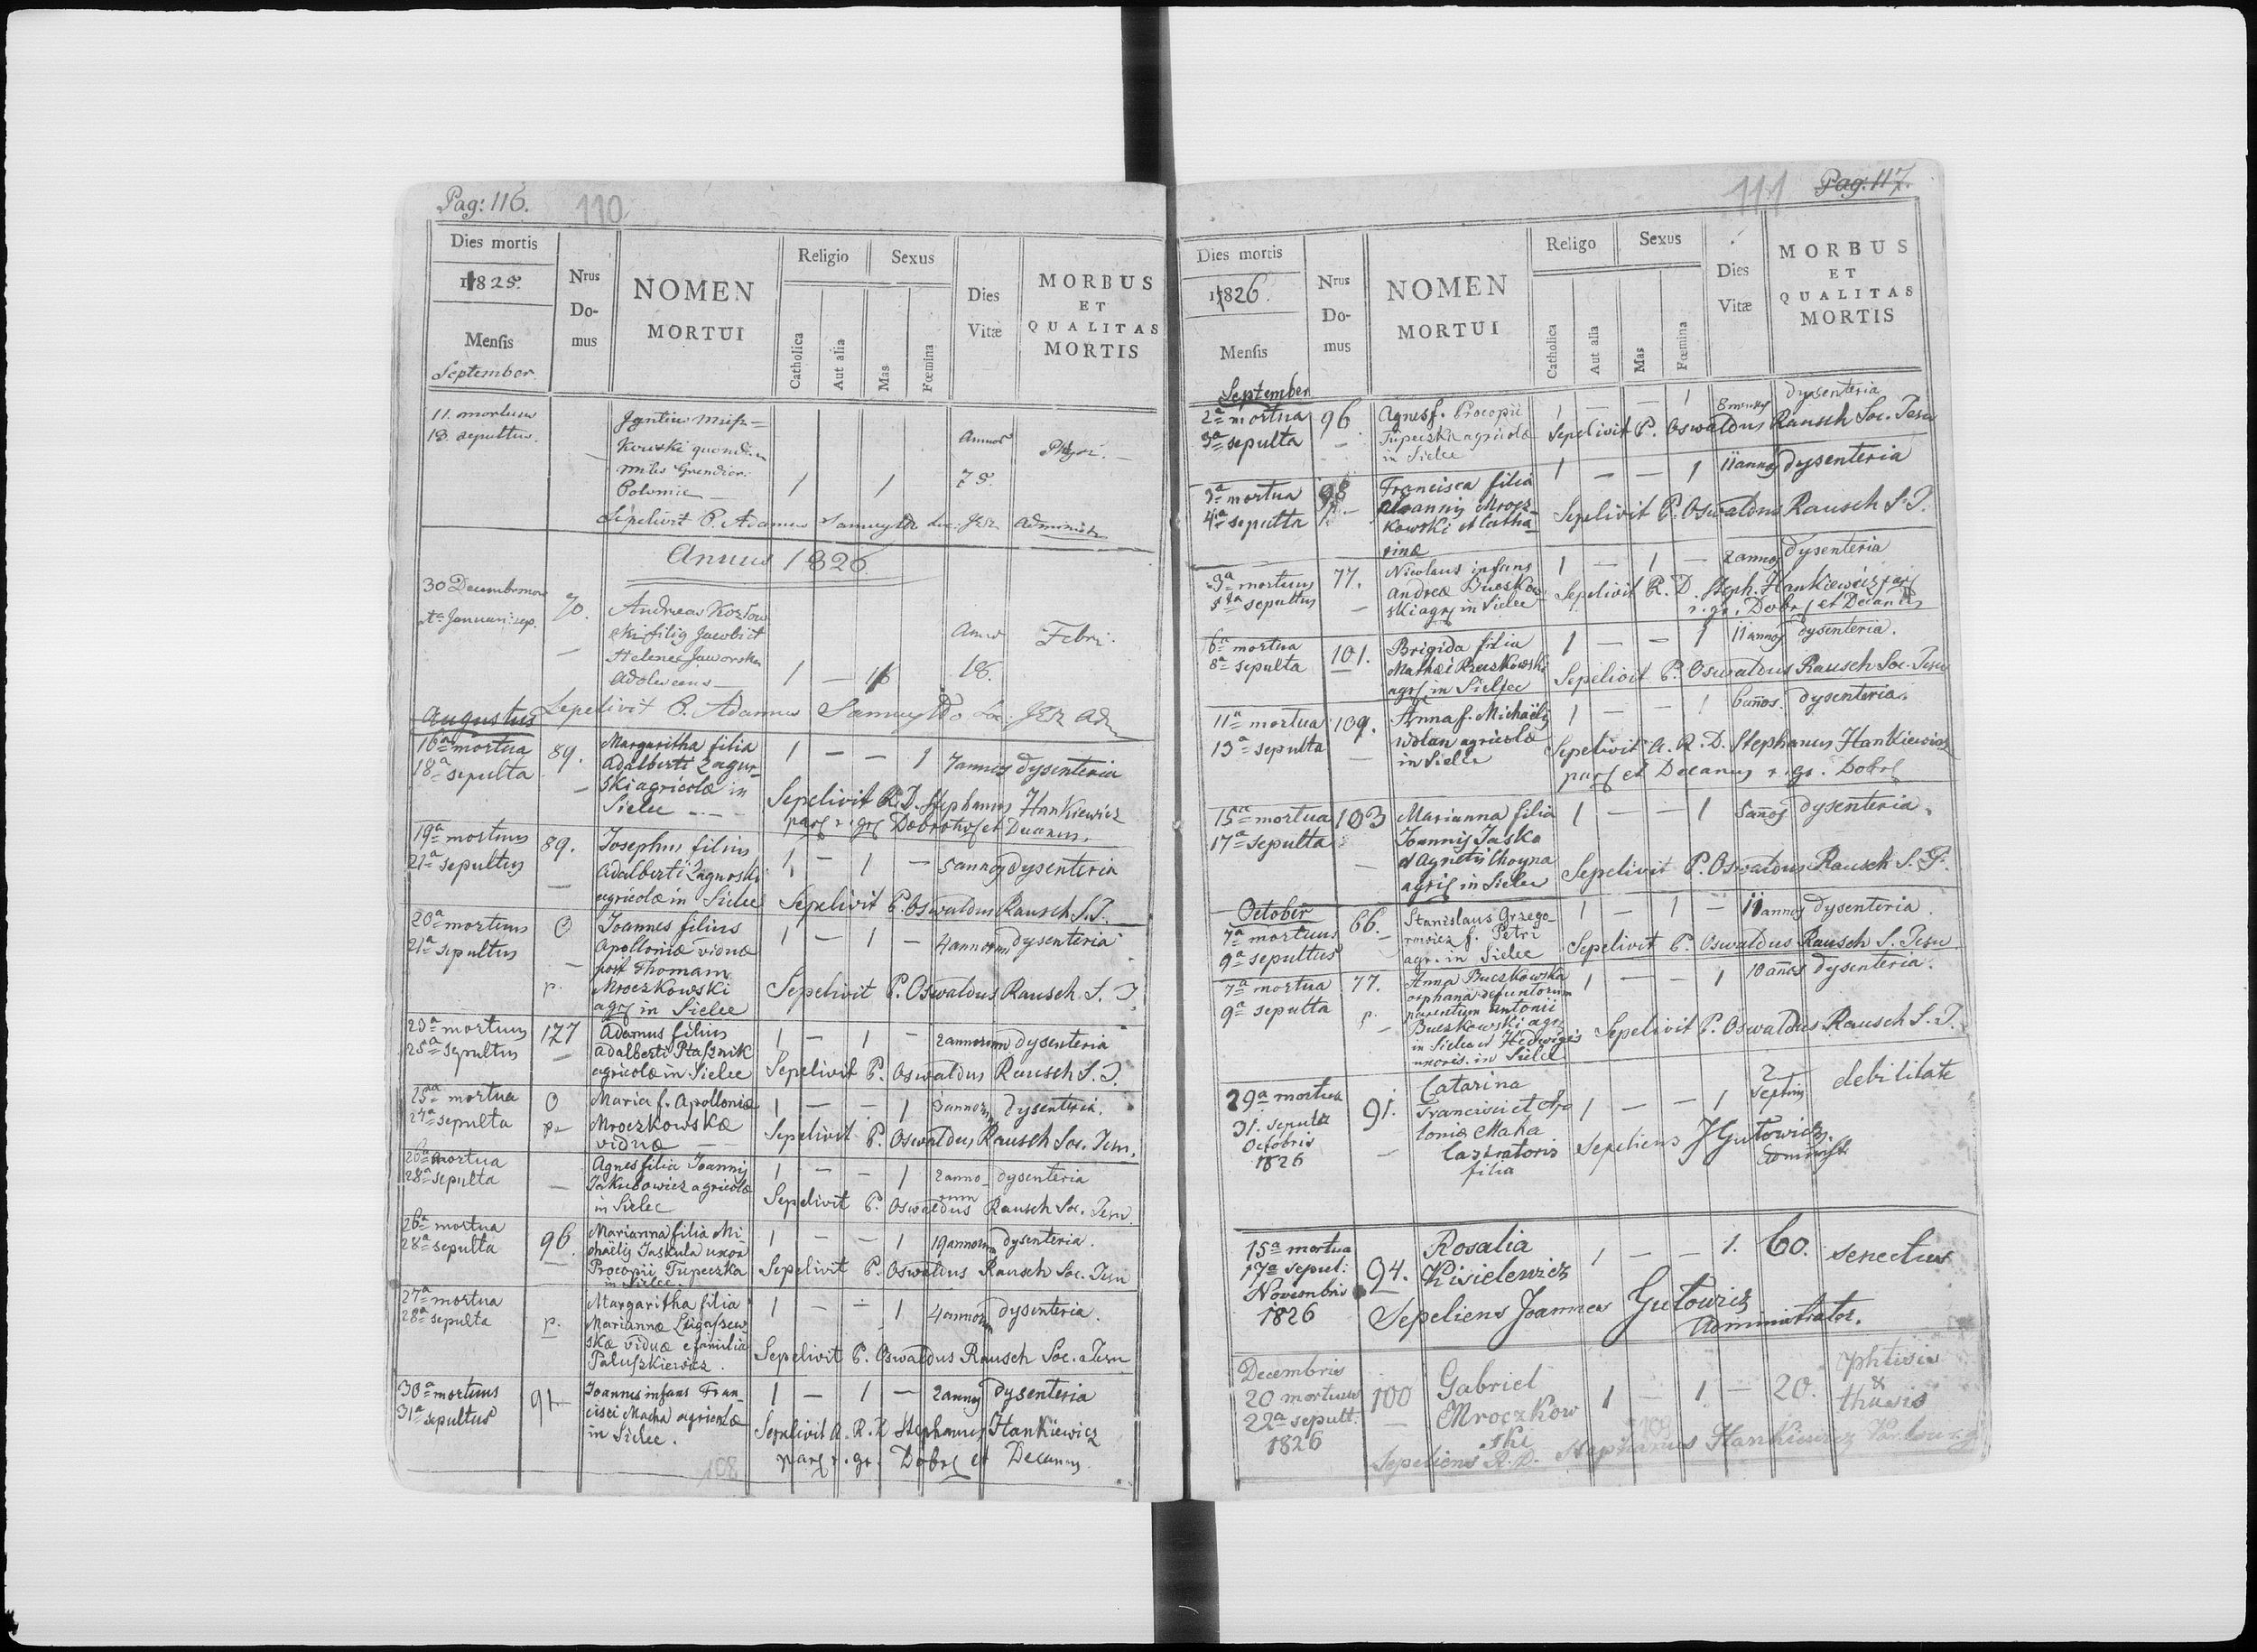 Pag: 116.
110
Dies mortis
1825.
Mensis
September.
Nrus
Do-
mus
NOMEN
MORTUI
Religio
Catholica
Aut alia
Sexus
Mas
Fœmina
Dies
Vitæ
MORBUS
ET
QUALITAS
MORTIS
11. mortuus
13. sepultus.
kowski quondam
miles
Poloniæ
1 1
Annor
75.
Sepelivit P. Adamus Administr
Annus 1826.
30 Decembr mor
Januari: sep.
70.
Andreas Kozłow
ski filig Jacobi et
Helenæ Jaworska
Adolescens
1 —
Annor
18.
Febri.
Sepelivit P. Adamus
Augustus
16a mortua
18a sepulta
89.
Margaritha filia
Adalberti Zagur-
ski agricolæ in
Sielec
1 — — 1 7 annos dysenteria
Sepelivit R. D. Stephanus Hankiewicz
et Decanus.
19a mortuus
21a sepultus
89.
Josephus filius
Adalberti Zagurski
agricolæ in Sielec
1 — 1 — 5 annos dysenteria
Sepelivit P. Oswaldus Rausch S. J.
20a mortuus
21a sepultus
0
p.
Joannes filius
Apolloniæ viduæ
post Thomam
Mroczkowski
agr in Sielec
1 — 1 — 4 annorum dysenteria
Sepelivit P. Oswaldus Rausch S. J.
23a mortuus
25a sepultus
127
Adamus filius
Adalberti Ptasznik
agricolæ in Sielec
1 — 1 — 2 annorum dysenteria
Sepelivit P. Oswaldus Rausch S. J.
25a mortua
27a sepulta
0
p.
Maria f. Apolloniæ
Mroczkowskæ
viduæ
1 — — 1 3 annorum dysenteria.
Sepelivit P. Oswaldus Rausch Soc. Jesu.
26a mortua
28a sepulta
Agnes filia Joannis
Jakubowicz agricolæ
in Sielec
1 — — 1 2 anno- dysenteria
rum
Sepelivit P. Oswaldus Rausch Soc. Jesu.
26a mortua
28a sepulta
96.
Marianna filia Mi-
chaëlis Jaskuła uxor
Procopii Tupeczka
in Sielec.
1 — — 1 19 annorum dysenteria.
Sepelivit P. Oswaldus Rausch Soc. Jesu
27a mortua
28a sepulta
p.
Margaritha filia
Mariannæ
skæ viduæ e familia
Paluszkiewicz.
1 — — 1 4 annorum dysenteria.
Sepelivit P. Oswaldus Rausch Soc. Jesu
30a mortuus
31a sepultus
91
Joannes infans Fran-
cisci Macha agricolæ
in Sielec.
1 — 1 — 2 annos dysenteria
Sepelivit A. R. D. Stephanus Hankiewicz
r. gr. Dobr et Decanus.
108
111
Pag: 117.
Dies mortis
1826.
Mensis
Nrus
Do-
mus
NOMEN
MORTUI
Religo
Catholica
Aut alia
Sexus
Mas
Fœmina
Dies
Vitæ
MORBUS
ET
QUALITAS
MORTIS
September
2a mortua
3a sepulta
96.
Agnes f. Procopii
Tupeczka agricolæ
in Sielec
1 — — 1 8 menses dysenteria
Sepelivit P. Oswaldus Rausch Soc. Jesu
3a mortua
4a sepulta
98
Francisca filia
Joannis Mrocz-
kowski et Catha-
rinæ
1 — — 1 11 annos dysenteria
Sepelivit P. Oswaldus Rausch S. J.
3a mortuus
5ta sepultus
77.
Nicolaus infans
Andreæ Buczkow-
ski agr in Sielec
1 — 1 — 2 annos dysenteria
Sepelivit R. D. Steph. Hankiewicz
r. gr. Dobr et Decanus
6a mortua
8a sepulta
101.
Brigida filia
Mathæi
agr in Sielec
1 — — 1 11 annos dysenteria.
Sepelivit P. Oswaldus Rausch Soc. Jesu
11a mortua
13a sepulta
109.
Anna f. Michaëlis
Wolan agricolæ
in Sielec
1 — — 1 6 annos. dysenteria.
Sepelivit A. R. D. Stephanus Hankiewicz
et Decanus r. gr. Dobr
15a mortua
17a sepulta
103
Marianna filia
Joannis Jasko
et Agnetis Choyna
agr in Sielec
1 — — 1 5 annos dysenteria.
Sepelivit P. Oswaldus Rausch S. J.
October
7a mortuus
9a sepultus
66.
Stanislaus Grzego-
rowicz f. Petri
agr. in Sielec
1 — 1 — 11 annos dysenteria.
Sepelivit P. Oswaldus Rausch S. Jesu
7a mortua
9a sepulta
77.
p.
Anna Buczkowska
orphana defuntorum
parentum Antonii
Buczkowski agr
in Sielec et Hedwigis
uxoris. in Sielec
1 — — 1 10 annos dysenteria.
Sepelivit P. Oswaldus Rausch S. J.
29a mortua
31. sepulta
Octobris
1826
91.
Catarina
Francisci et Apo
loniæ Maha
Castratoris
filia
1 — — 1
2
Septim
debilitate
Sepeliens J Gutowicz.
Administr
15a mortua
17a sepul:
Novembris
1826
94.
Rosalia
Kisielewicz
1 — — 1. 60. senectus
Sepeliens Joannes Gutowicz
Administrator.
Decembris
20 mortuus
22a sepult:
1826
100
Gabriel
Mroczkow
ski
1 — 1. — 20.
&
109
Sepeliens R. D. Stephanus Hankiewicz